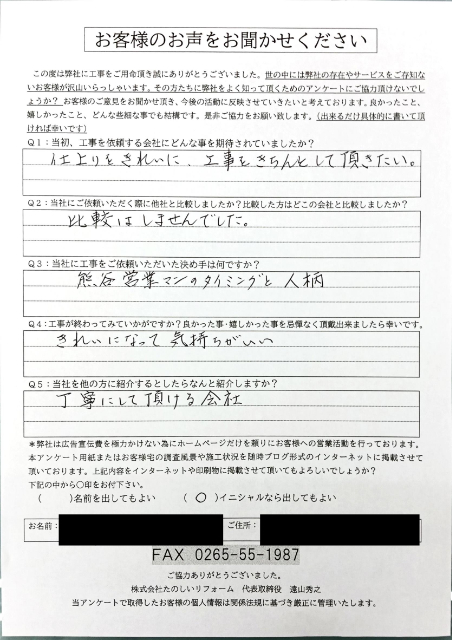 お客様のお声をお聞かせください
この度は弊社に工事をご用命頂き誠にありがとうございました。世の中には弊社の存在やサービスをご存知な
いお客様が沢山いらっしゃいます。その方たちに弊社をよく知って頂くためのアンケートにご協力頂けないで
しょうか？お客様のご意見をお聞かせ頂き、今後の活動に反映させていきたいと考えております。良かったこと、
嬉しかったこと、どんな些細な事でも結構です。是非ご協力をお願い致します。（出来るだけ具体的に書いて頂
ければ幸いです）
Q1：当初、工事を依頼する会社にどんな事を期待されていましたか？
仕上りをきれいに、工事をきちんとして頂きたい。
Q2：当社にご依頼いただく際に他社と比較しましたか？比較した方はどこの会社と比較しましたか？
比較はしませんでした。
Q3：当社に工事をご依頼いただいた決め手は何ですか？
熊谷営業マンのタイミングと人柄
Q4：工事が終わってみていかがですか？良かった事・嬉しかった事を忌憚なく頂戴出来ましたら幸いです。
きれいになって気持ちがいい
Q5：当社を他の方に紹介するとしたらなんと紹介しますか？
丁寧にして頂ける会社
＊弊社は広告宣伝費を極力かけない為にホームページだけを頼りにお客様への営業活動を行っております。
本アンケート用紙またはお客様宅の調査風景や施工状況を随時ブログ形式のインターネットに掲載させて
頂いております。上記内容をインターネットや印刷物に掲載させて頂いてもよろしいでしょうか？
下記の中から〇印をお付下さい。
（　　）名前を出してもよい　　（ 〇 ）イニシャルなら出してもよい
お名前：　　ご住所：
FAX 0265-55-1987
ご協力ありがとうございました。
株式会社たのしいリフォーム　代表取締役　遠山秀之
当アンケートで取得したお客様の個人情報は関係法規に基づき厳正に管理いたします。